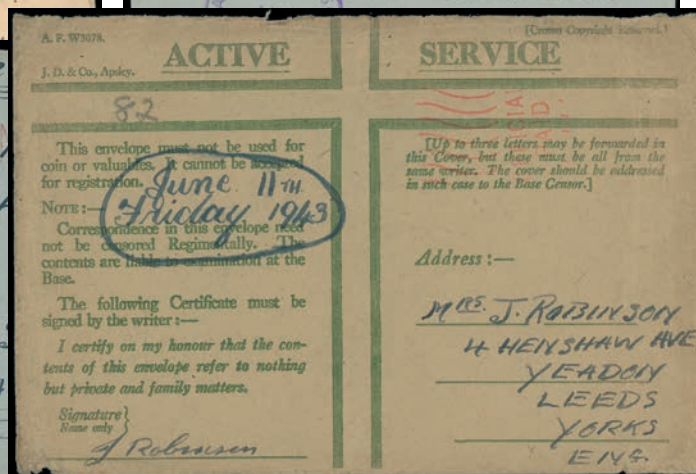 A. F. W3078.
J. D. & Co., Apsley.
ACTIVE
82
This envelope must not be used for
coin or valuables. It cannot be accepted
for registration.
June 11TH
NOTE:—
Friday 1943
Correspondence in this envelope need
not be censored Regimentally. The
contents are liable to examination at the
Base.
The following Certificate must be
signed by the writer:—
I certify on my honour that the con-
tents of this envelope refer to nothing
but private and family matters.
Signature
Name only
J Robinson
[Crown Copyright Reserved.]
SERVICE
[Up to three letters may be forwarded in
this Cover, but these must be all from the
same writer. The cover should be addressed
in such case to the Base Censor.]
Address:—
MRS. J. ROBINSON
4 HENSHAW AVE
YEADON
LEEDS
YORKS
ENG.